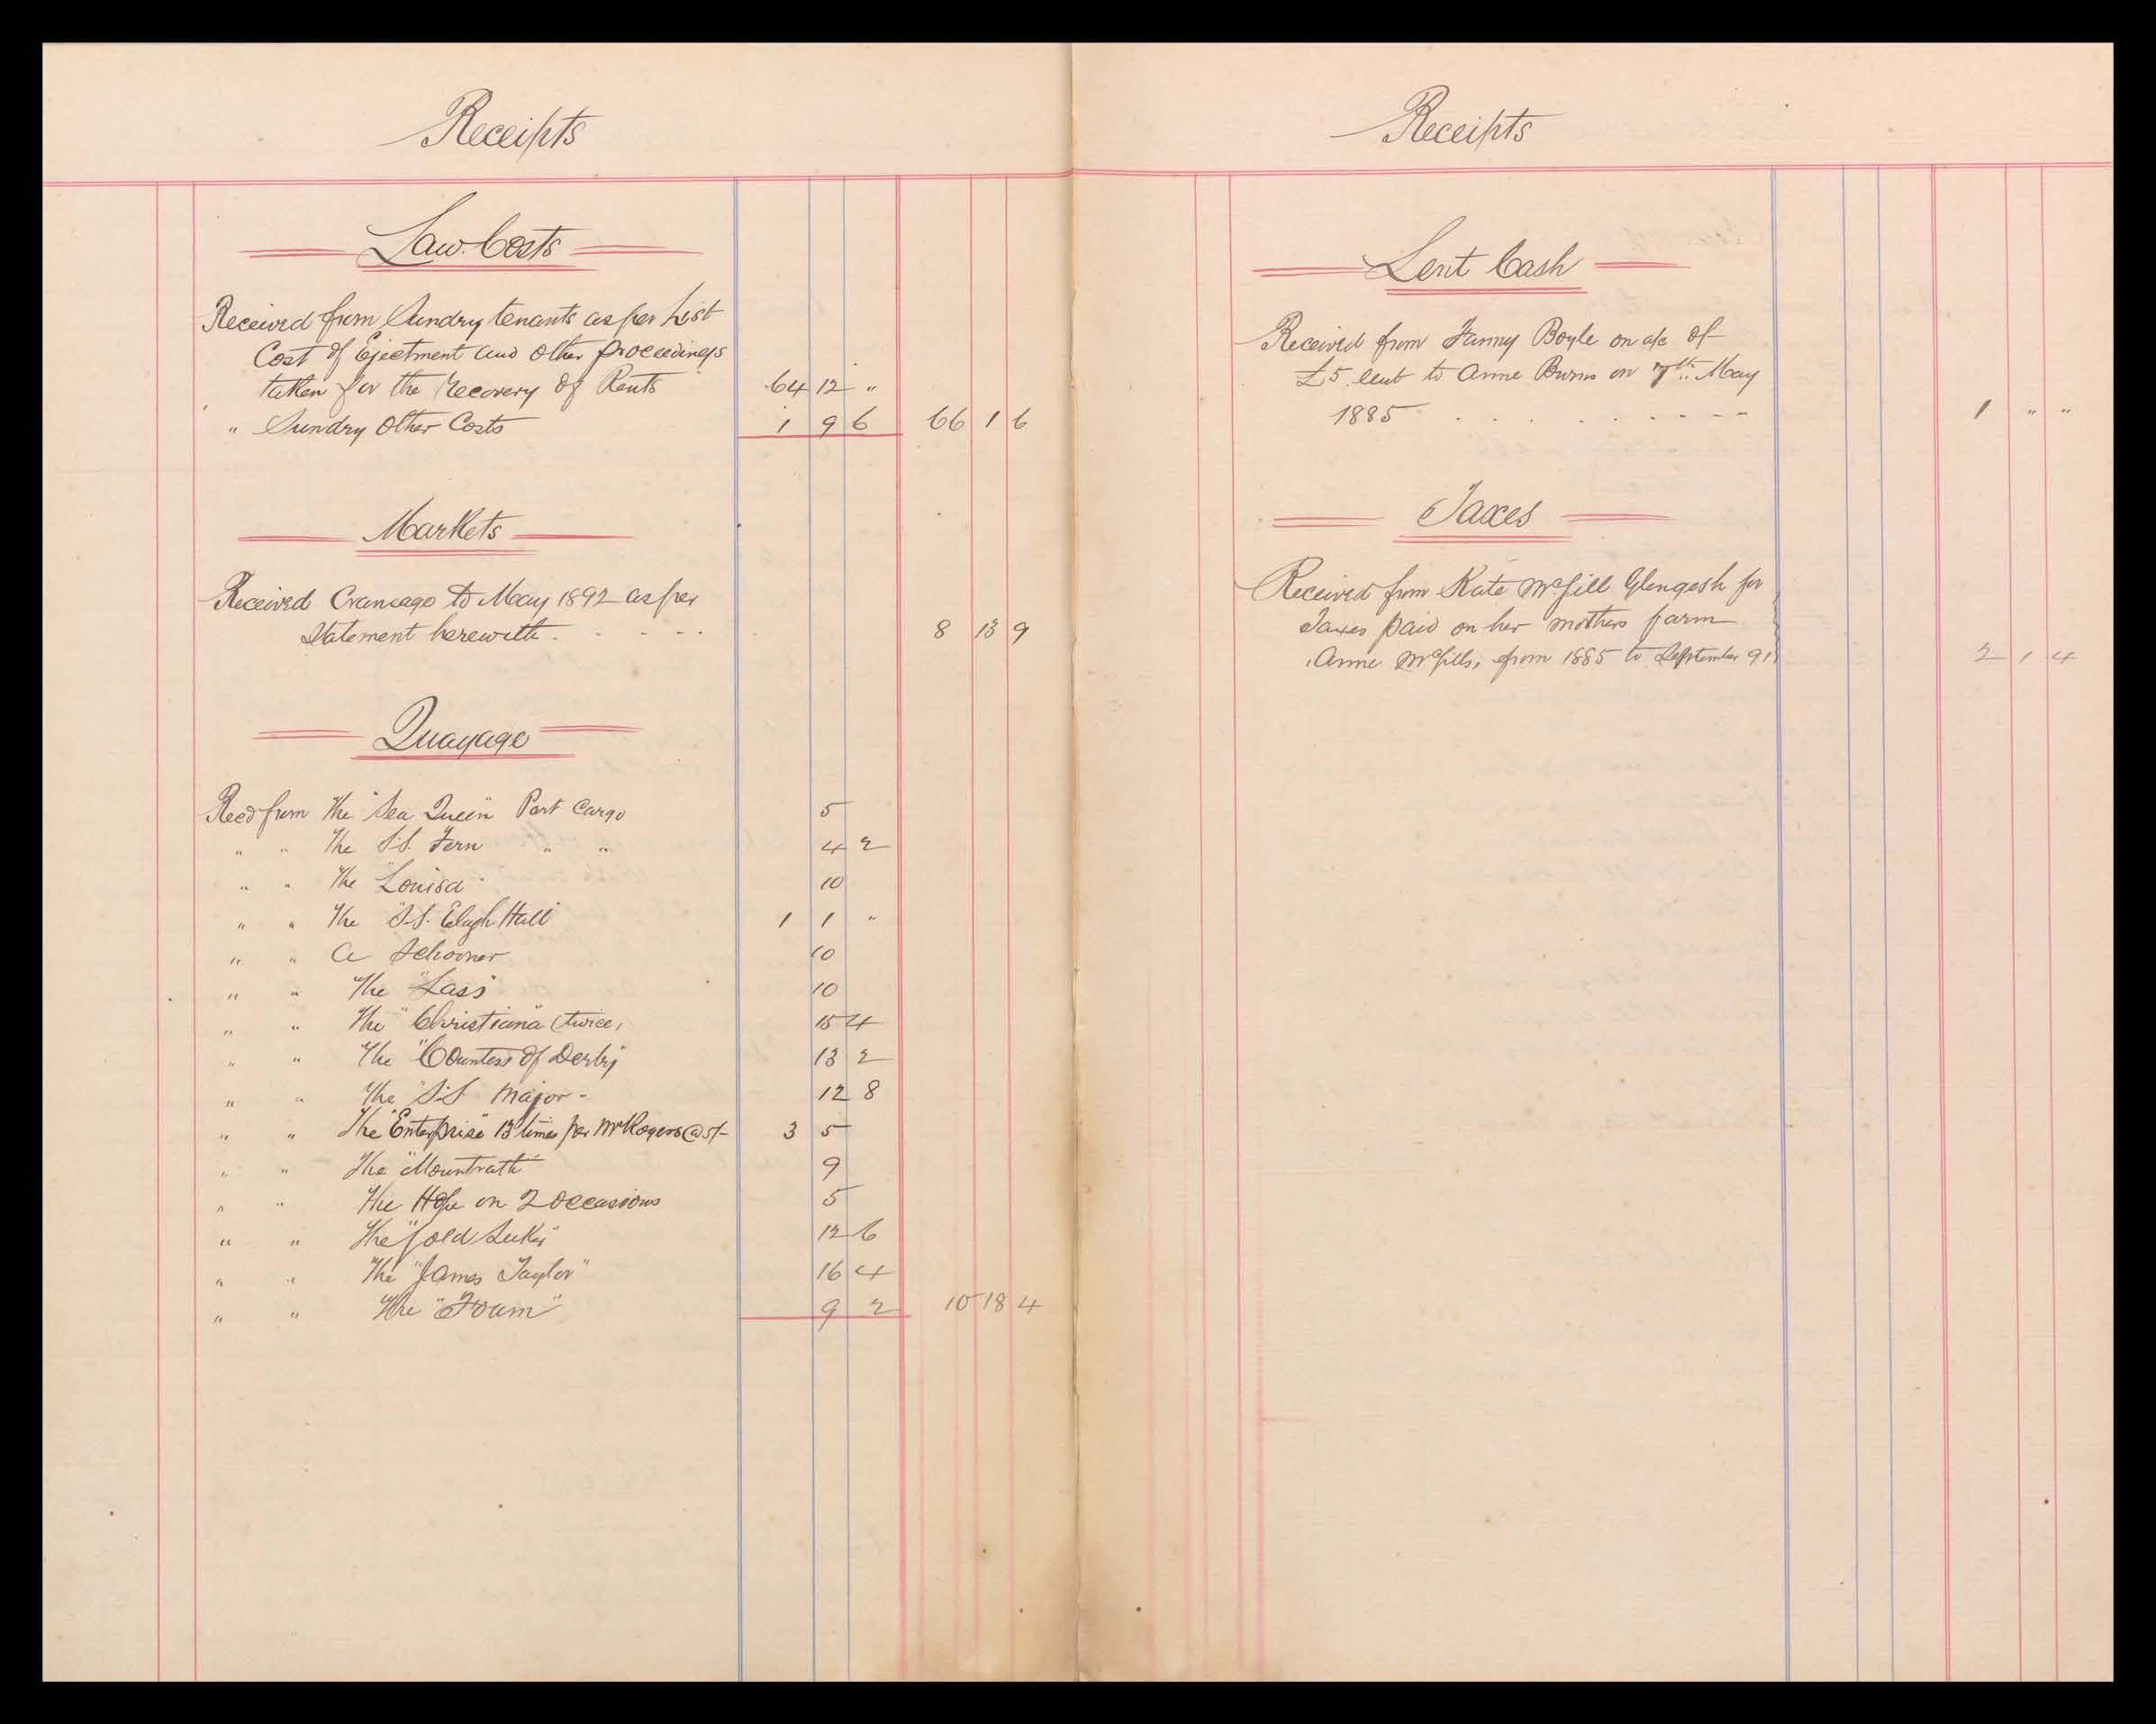 Receipts
Law Costs
Received from Sundry tenants as per List
Cost of Ejectment and other proceedings
taken for the recovery of Rents 64 12 "
" Sundry other Costs 1 9 6 66 1 6
Markets
Received Cranage to May 1892 as per
Statement herewith . . - - - 8 13 9
Quayage
Recd from The "Sea Queen" Part Cargo 5
" " The S.S. Fern " " 4 2
" " The "Louisa" 10
" " The "S.S. Elagh Hall" 1 1 "
" " a Schooner 10
" " The "Lass" 10
" " The "Christiana" (twice) 15 4
" " The "Countess of Derby" 13 2
" " The "S.S Major - 12 8
" " The "Enterprise" 13 times per Mr Rogers @ 5/- 3 5
" " The "Mountrath" 9
" " The Hope on 2 occasions 5
" " The "Gold Seeker" 12 6
" " The "James Taylor" 16 4
" " The "Foam" 9 2 10 18 4
Receipts
Lent Cash
Received from Fanny Boyle on a/c of
£5 lent to Anne Burns on 7th May
1885 . . . . . . . - - - 1 " "
Taxes
Received from Kate McGill Glengesh for
Taxes paid on her mothers farm
Anne McGills, from 1885 to September 91 2 1 4